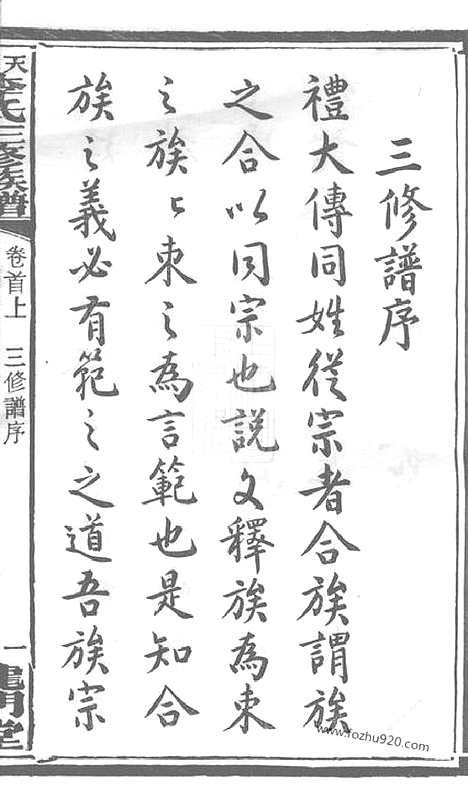 三修譜序
禮大傳同姓從宗者合族謂族
之合以同宗也説文釋族為束
之族〻束之為言範也是知合
族之義必有範之之道吾族宗
氏三修族譜
卷首上 三修譜序
一
龍門堂
www.fozhu920.com